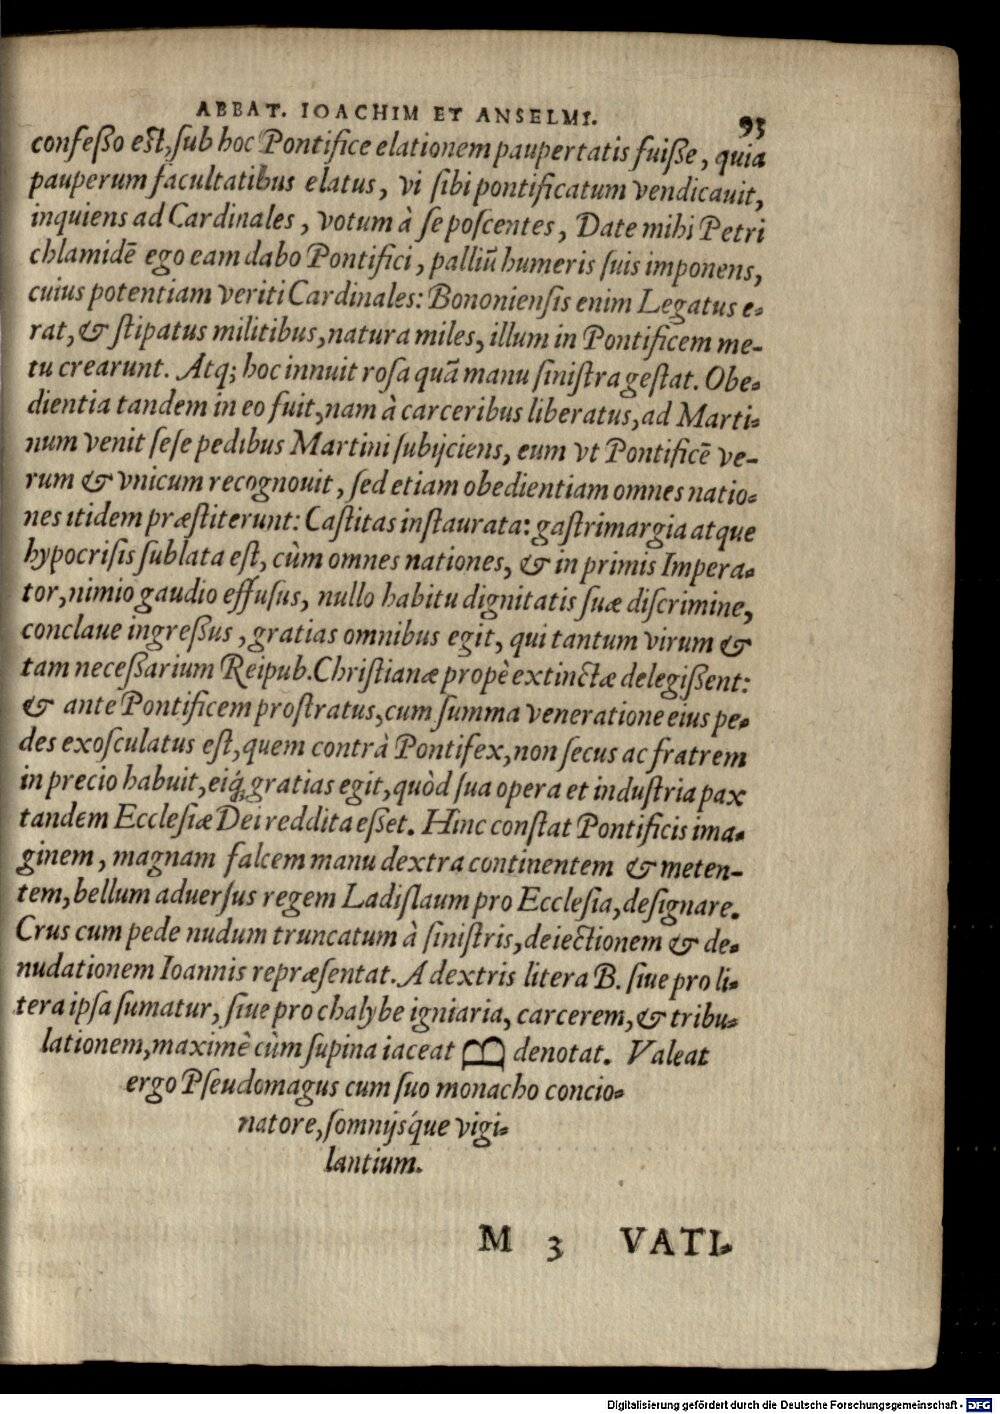 ABBAT. IOACHIM ET ANSELMI. 93
confeßo est, sub hoc Pontifice elationem paupertatis fuiße, quia
pauperum facultatibus elatus, vi sibi pontificatum vendicauit,
inquiens ad Cardinales, votum à se poscentes, Date mihi Petri
chlamidē ego eam dabo Pontifici, palliū humeris suis imponens,
cuius potentiam veriti Cardinales: Bononiensis enim Legatus e-
rat, & stipatus militibus, natura miles, illum in Pontificem me-
tu crearunt. Atq; hoc innuit rosa quā manu sinistra gestat. Obe-
dientia tandem in eo fuit, nam à carceribus liberatus, ad Marti-
num venit sese pedibus Martini subijciens, eum vt Pontificē ve-
rum & vnicum recognouit, sed etiam obedientiam omnes natio-
nes itidem præstiterunt: Castitas instaurata: gastrimargia atque
hypocrisis sublata est, cùm omnes nationes, & in primis Impera-
tor, nimio gaudio effusus, nullo habitu dignitatis suæ discrimine,
conclaue ingreßus, gratias omnibus egit, qui tantum virum &
tam neceßarium Reipub. Christianæ propè extinctæ delegißent:
& ante Pontificem prostratus, cum summa veneratione eius pe-
des exosculatus est, quem contrà Pontifex, non secus ac fratrem
in precio habuit, eiq́; gratias egit, quòd sua opera et industria pax
tandem Ecclesiæ Dei reddita eßet. Hinc constat Pontificis ima-
ginem, magnam falcem manu dextra continentem & meten-
tem, bellum aduersus regem Ladislaum pro Ecclesia, designare.
Crus cum pede nudum truncatum à sinistris, deiectionem & de-
nudationem Ioannis repræsentat. A dextris litera B. siue pro li-
tera ipsa sumatur, siue pro chalybe igniaria, carcerem, & tribu-
lationem, maximè cùm supina iaceat B denotat. Valeat
ergo Pseudomagus cum suo monacho concio-
natore, somnijsq́ue vigi-
lantium.
M 3 VATI-
Digitalisierung gefördert durch die Deutsche Forschungsgemeinschaft - DFG